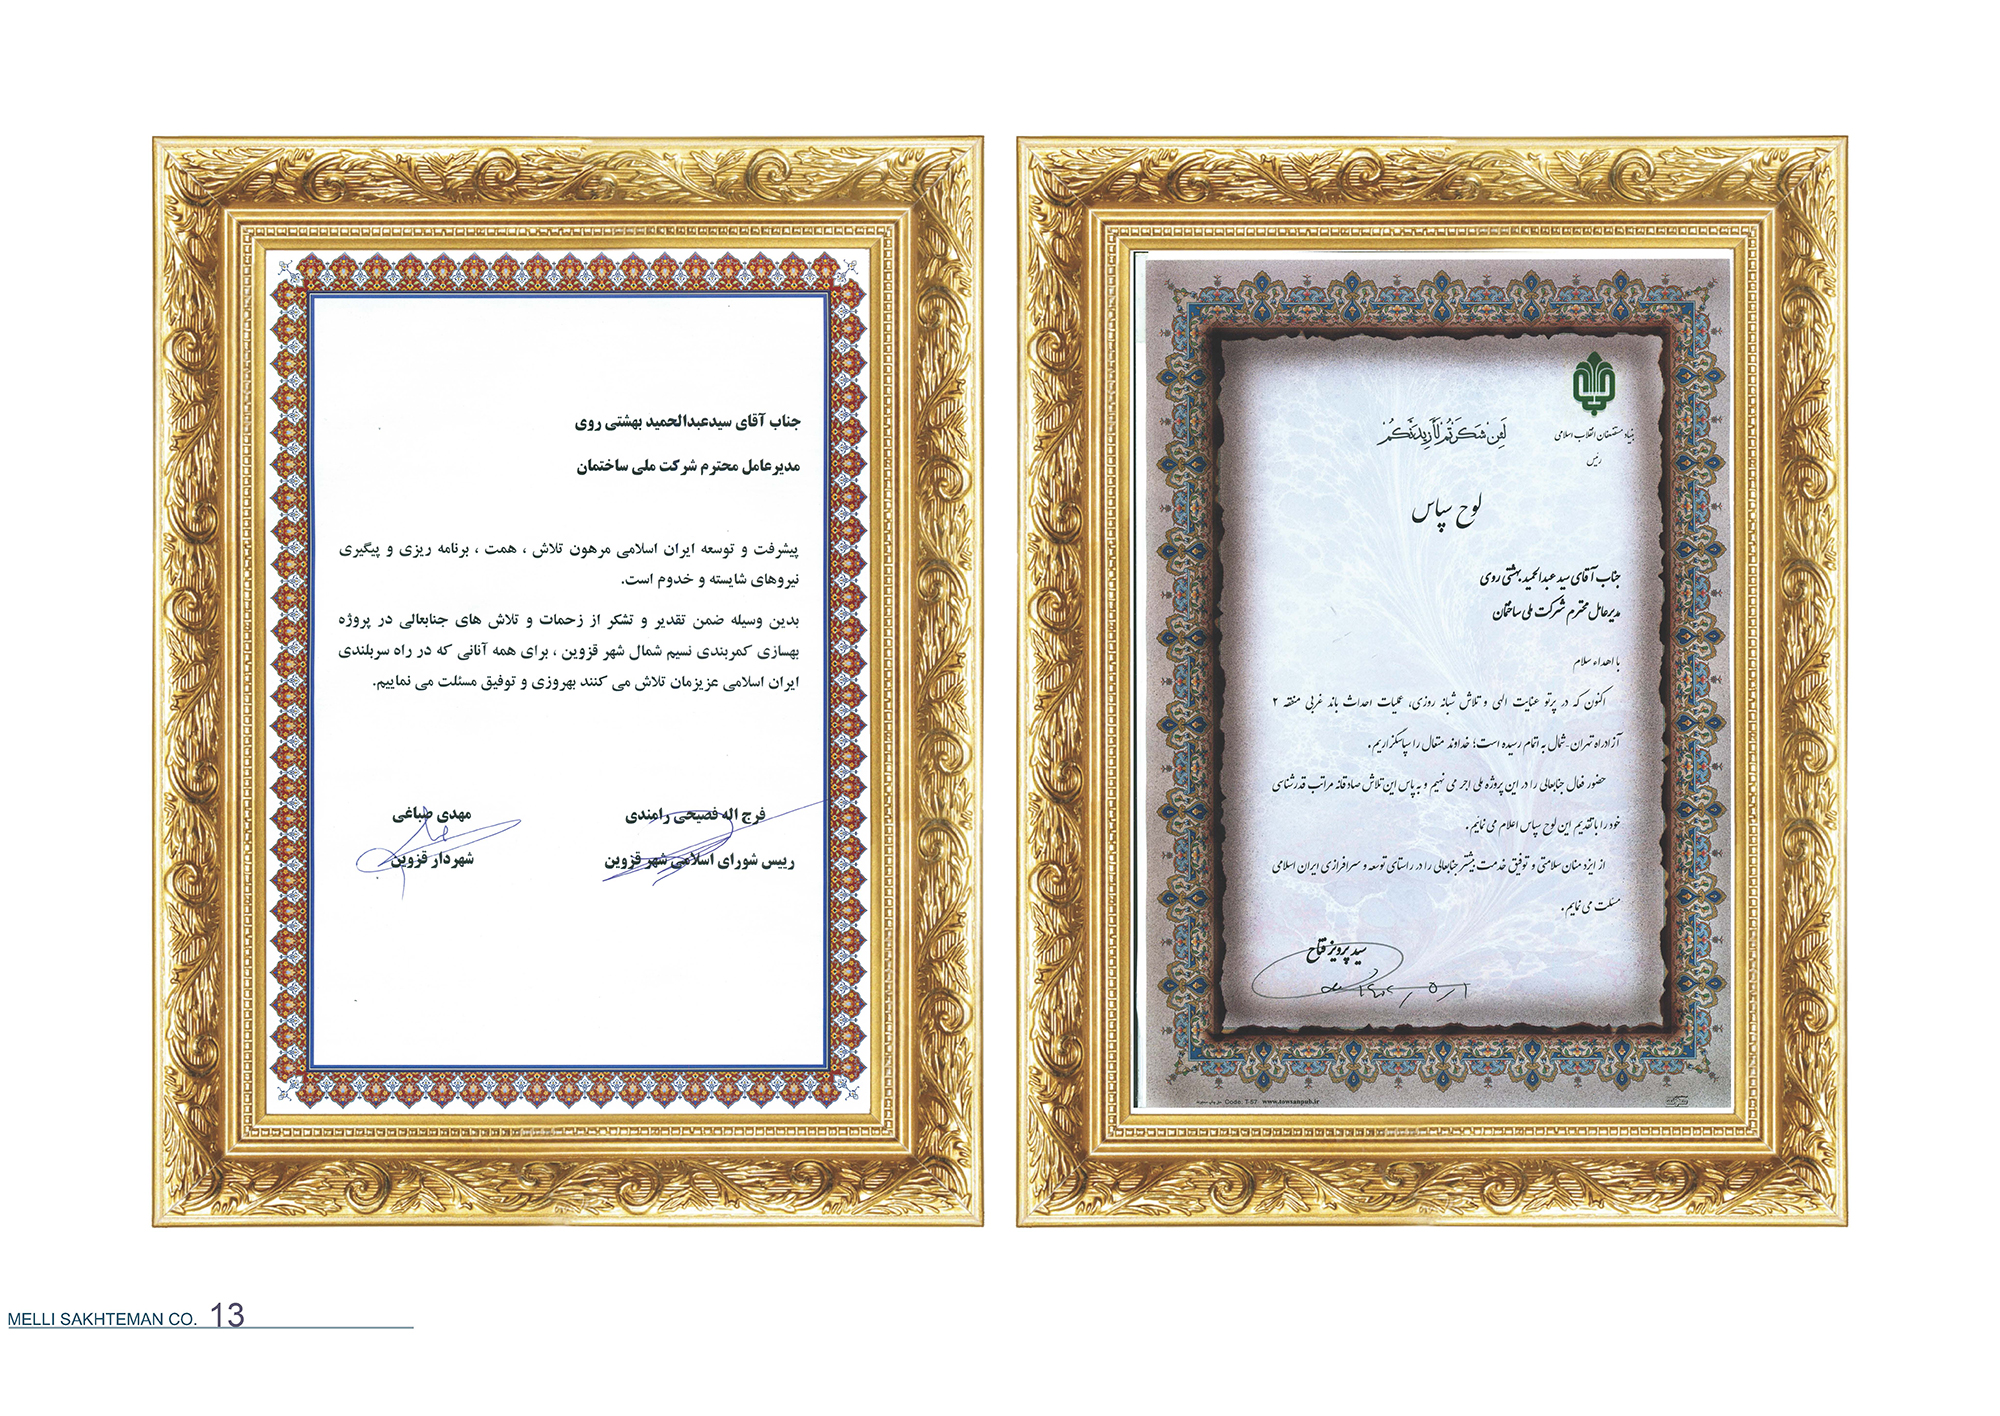 لَئِن شَكَرتُم لَأَزِيدَنَّكُم
بنیاد مستضعفان انقلاب اسلامی
رئیس
لوح سپاس
جناب آقای سید عبدالحمید بهشتی روی
مدیرعامل محترم شرکت ملی ساختمان
با اهداء سلام
اکنون که در پرتو عنایت الهی و تلاش شبانه روزی، عملیات احداث باند غربی منطقه ۲
آزادراه تهران-شمال به اتمام رسیده است؛ خداوند متعال را سپاسگزاریم.
حضور فعال جنابعالی را در این پروژه ملی اجر می نهیم و به پاس این تلاش صادقانه مراتب قدرشناسی
خود را با تقدیم این لوح سپاس اعلام می نمائیم.
از ایزد منان سلامتی و توفیق خدمت بیشتر جنابعالی را در راستای توسعه و سرافرازی ایران اسلامی
مسئلت می نمایم.
سید پرویز فتاح
Code: T-57 www.towsanpub.ir
جناب آقای سیدعبدالحمید بهشتی روی
مدیرعامل محترم شرکت ملی ساختمان
پیشرفت و توسعه ایران اسلامی مرهون تلاش ، همت ، برنامه ریزی و پیگیری
نیروهای شایسته و خدوم است.
بدین وسیله ضمن تقدیر و تشکر از زحمات و تلاش های جنابعالی در پروژه
بهسازی کمربندی نسیم شمال شهر قزوین ، برای همه آنانی که در راه سربلندی
ایران اسلامی عزیزمان تلاش می کنند بهروزی و توفیق مسئلت می نماییم.
فرج اله فصیحی رامندی
رییس شورای اسلامی شهر قزوین
مهدی صباغی
شهردار قزوین
MELLI SAKHTEMAN CO. 13